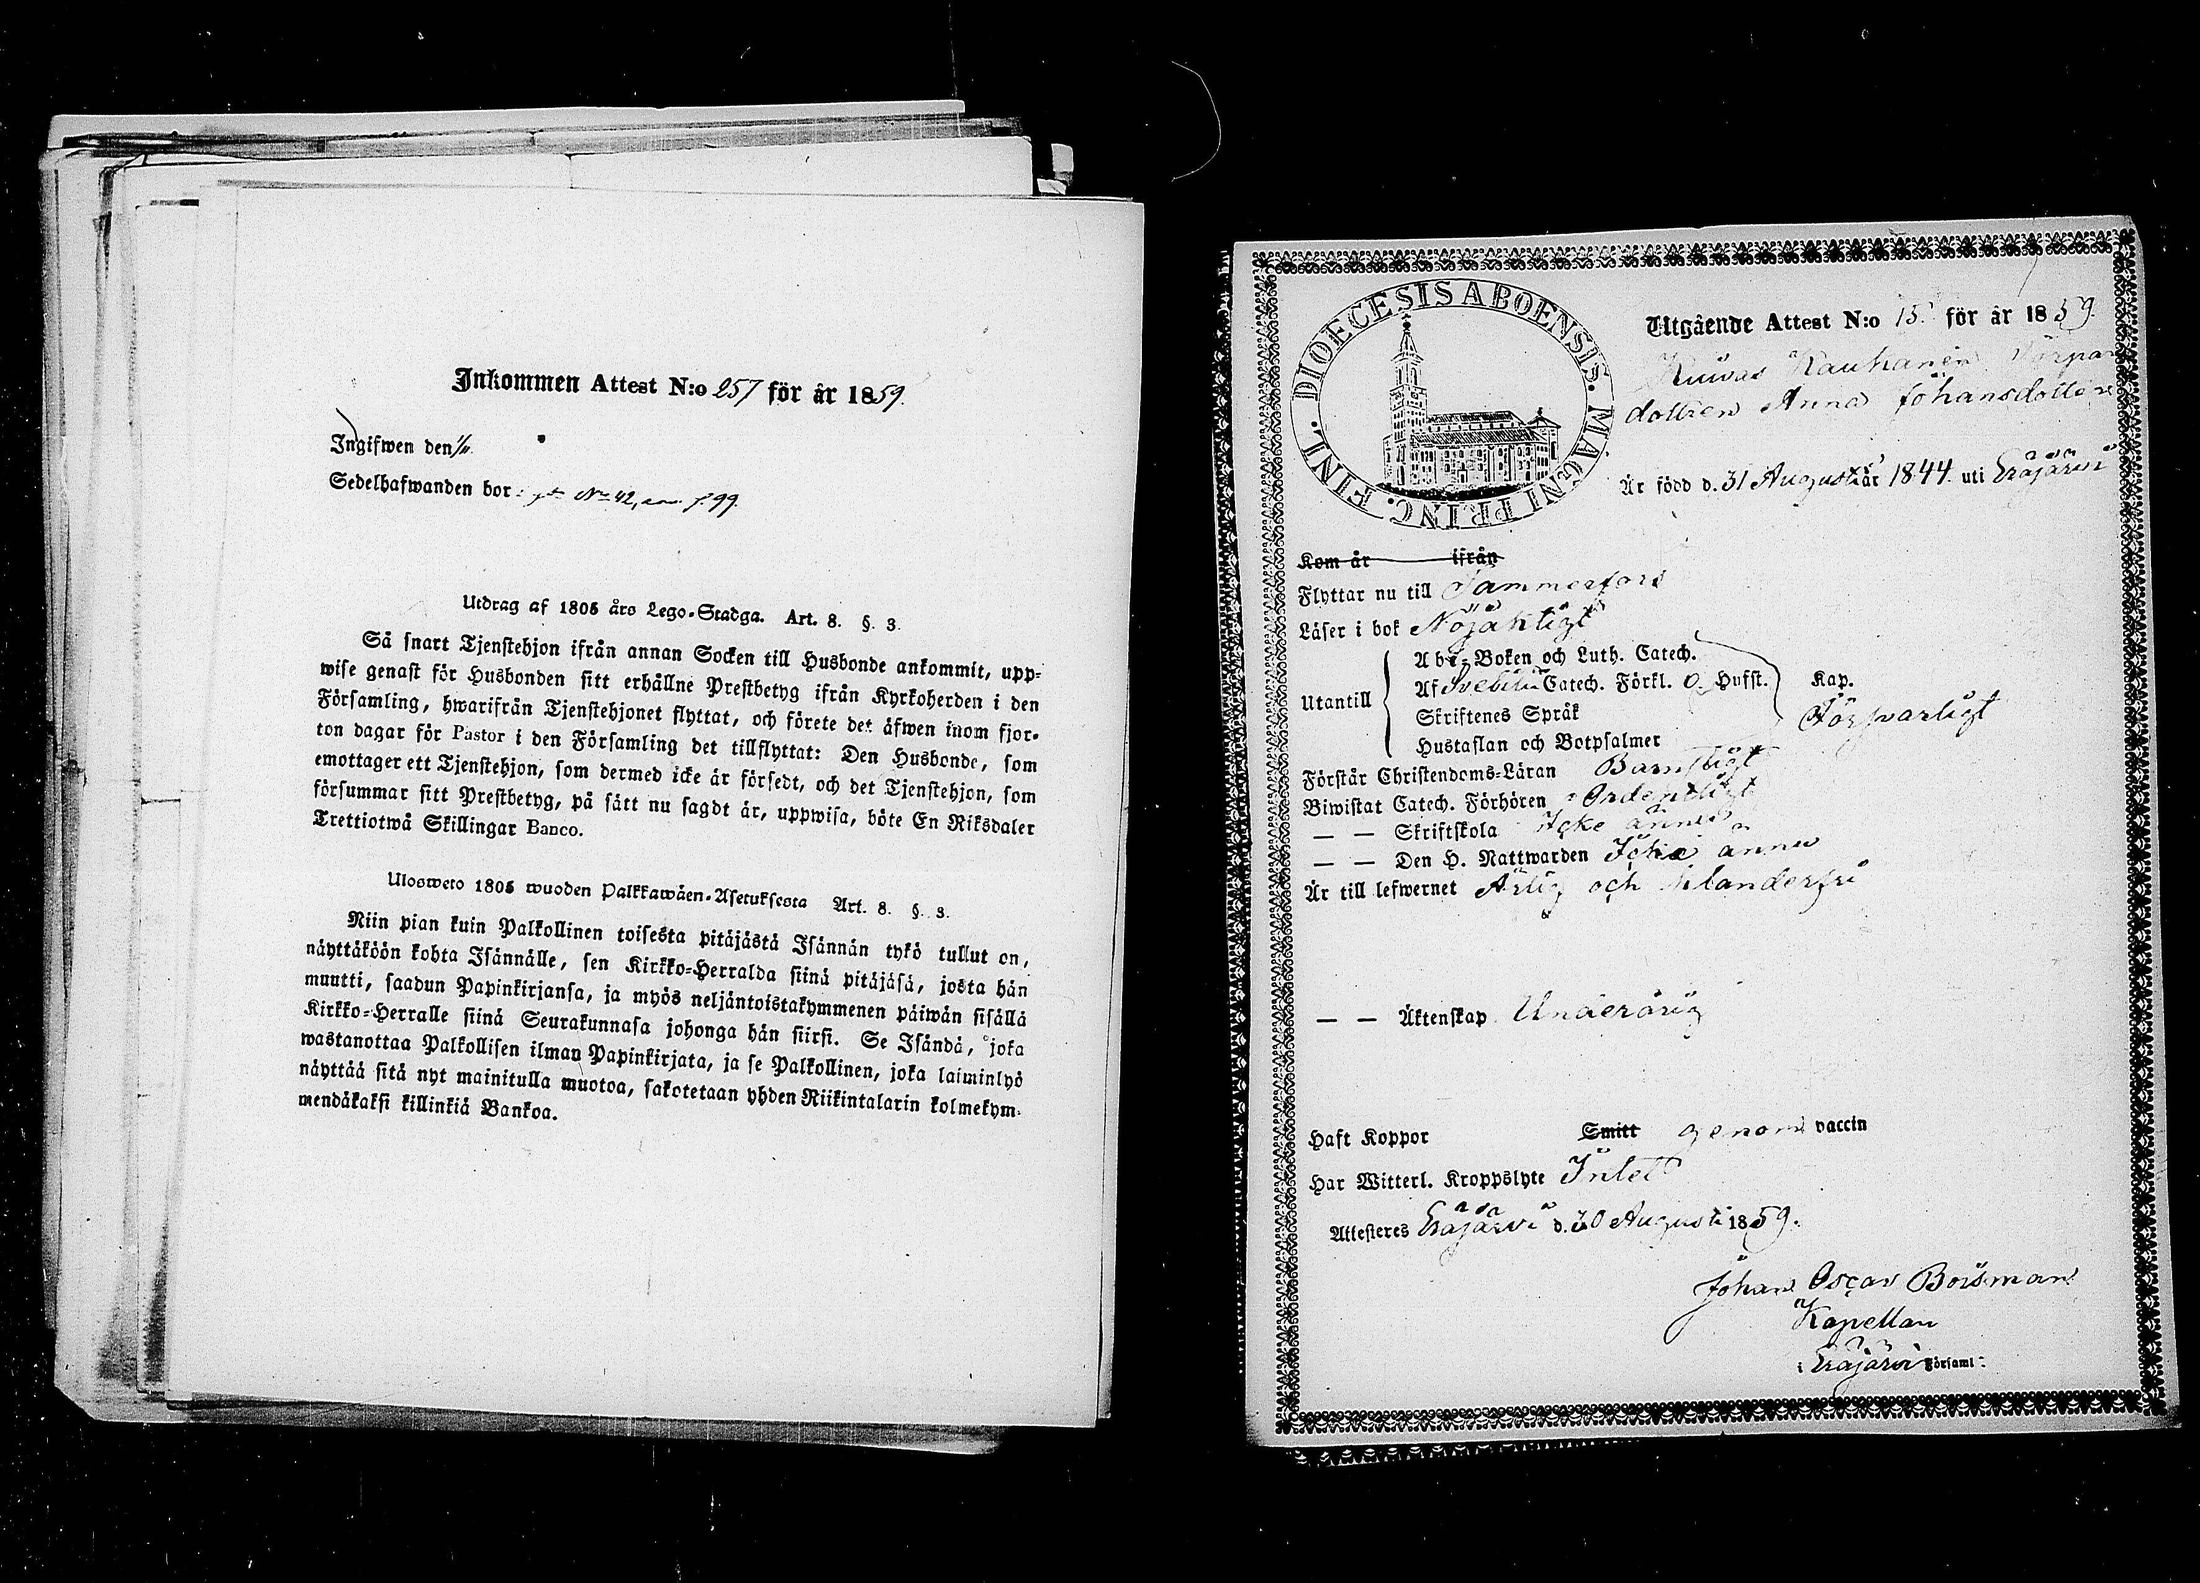 Inkommen Attest N:o 257 för år 1859.
Ingifwen den 1/11
Sedelhafwanden bor i N:o 42, p. 99.
Utdrag af 1805 års Lego-Stadga. Art. 8. §. 3.
Så snart Tjenstehjon ifrån annan Socken till Husbonde ankommit, upp-
wise genast för Husbonden sitt erhållne Prestbetyg ifrån Kyrkoherden i den
Församling, hwarifrån Tjenstehjonet flyttat, och förete det äfwen inom fjor-
ton dagar för Pastor i den Församling det tillflyttat: Den Husbonde, som
emottager ett Tjenstehjon, som dermed icke är försedt, och det Tjenstehjon, som
försummar sitt Prestbetyg, på sätt nu sagdt är, uppwisa, böte En Riksdaler
Trettiotwå Skillingar Banco.
Ulosweto 1805 wuoden Palkkawäen-Asetuksesta Art. 8. §. 3.
Niin pian kuin Palkollinen toisesta pitäjästä Isännän tykö tullut on,
näyttäköön kohta Isännälle, sen Kirkko-Herralda siinä pitäjäsä, josta hän
muutti, saadun Papinkirjansa, ja myös neljäntoistakymmenen päiwän sisällä
Kirkko-Herralle siinä Seurakunnasa johonga hän siirsi. Se Isändä, joka
wastanottaa Palkollisen ilman Papinkirjata, ja se Palkollinen, joka laiminlyö
näyttää sitä nyt mainitulla muotoa, sakotetaan yhden Riikintalarin kolmekym-
mendäkaksi killinkiä Bankoa.
DIOECESIS ABOENSIS. MAGNI PRINC. FINL.
Utgående Attest N:o 15. för år 1859.
Kauhanen Torpare
dottren Anna Johansdotter
Är född d. 31 Augusti år 1844. uti Eräjärvi
Kom år ifrån
Flyttar nu till Tammerfors
Läser i bok Nöjaktigt
Utantill
Abc-Boken och Luth. Catech.
Af Svebilii Catech. Förkl. o. Husst. Kap.
Skriftenes Språk
Hustaflan och Botpsalmer
Försvarligt
Förstår Christendoms-Läran Barnsligt
Biwistat Catech. Förhören Ordentligt
— — Skriftskola Icke ännu
— — Den H. Nattwarden Icke ännu
Är till lefwernet Ärlig och klanderfri
— — Äktenskap Underårig
Haft Koppor Smitt genom vaccin
Har Witterl. Kroppslyte Intet
Attesteres Eräjärvi d. 30 Augusti 1859.
Johan Oscar Boisman
Kapellan
i Eräjärvi Församl: